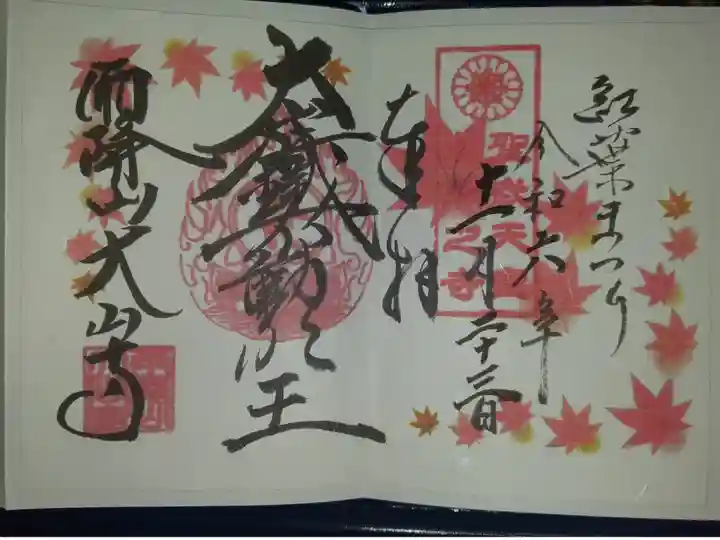 紅葉まつり
令和六年
十一月二十三日
奉拝
大鐵不動明王
雨降山大山寺